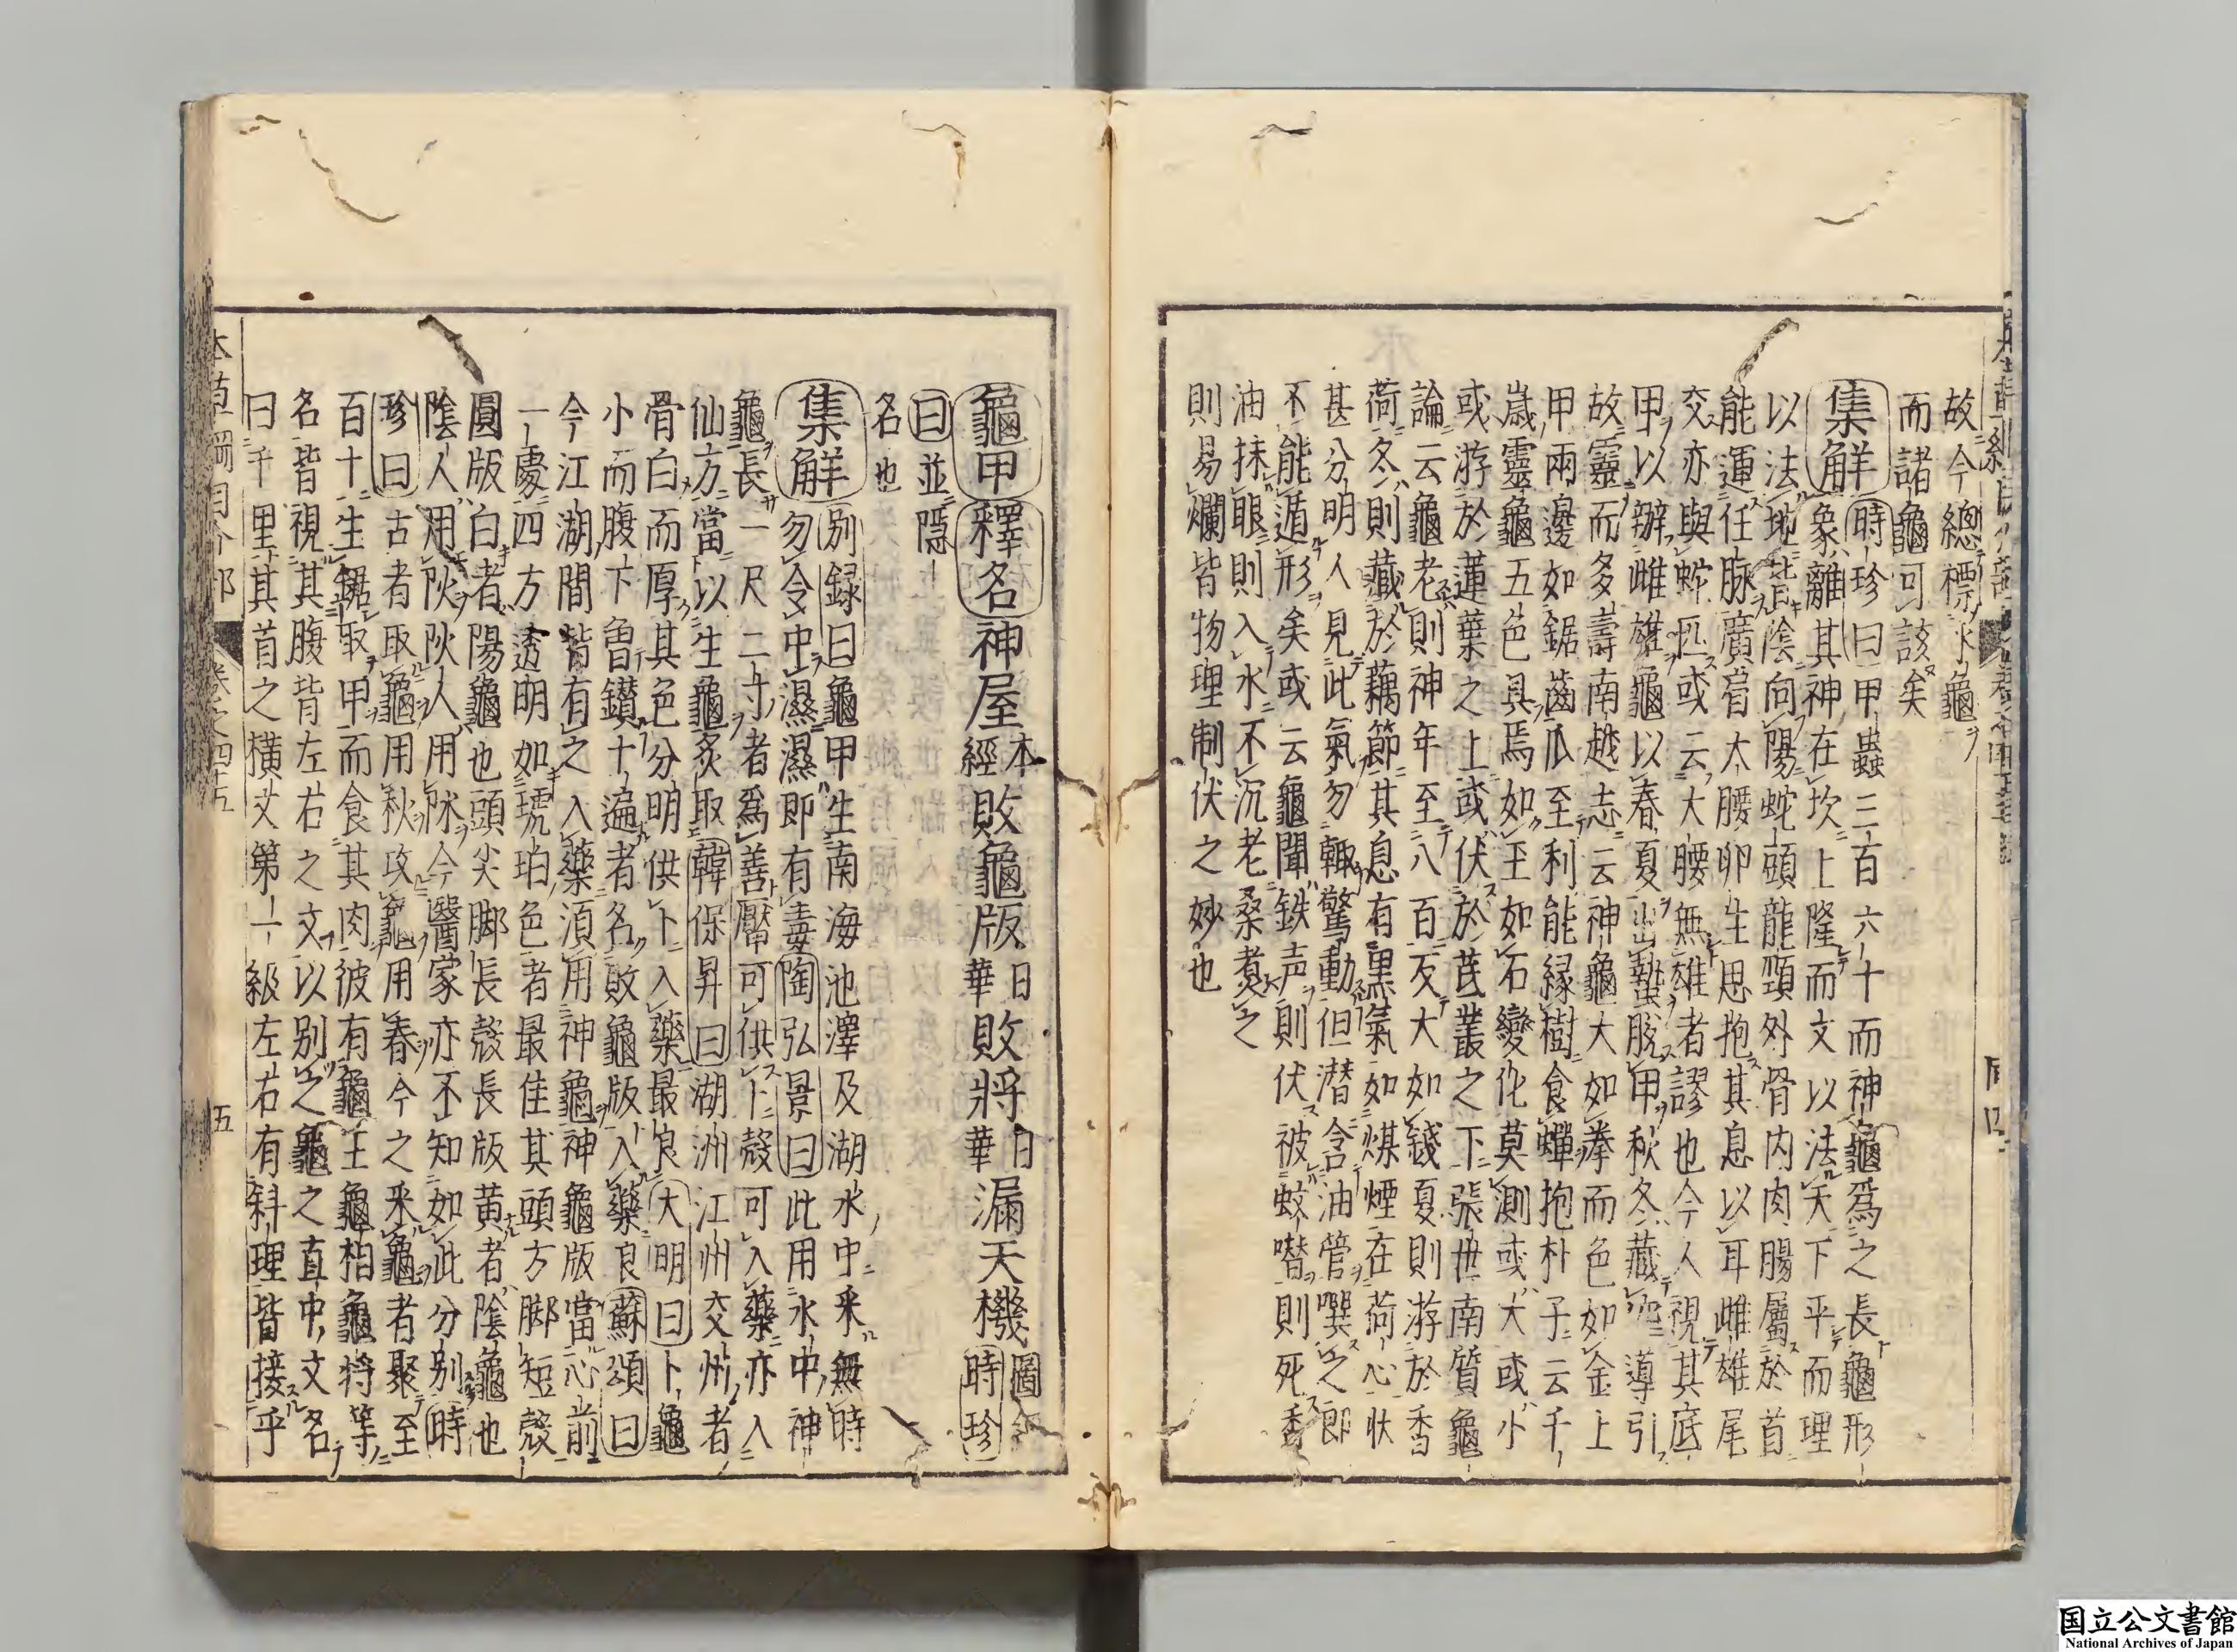 故今總標水龜
而諸龜可該矣
集解時珍曰甲蟲三百六十而神龜爲之長龜形
象離其神在坎上隆而文以法天下平而理
以法地背陰向陽蛇頭龍頸外骨内肉腸屬於首
能運任脉廣肩大腰卵生思抱其息以耳雌雄尾
交亦與蛇匹或云大腰無雄者謬也今人視其底
甲以辨雌雄龜以春夏出蟄脱甲秋冬藏穴導引
故靈而多壽南越志云神龜大如拳而色如金上
甲兩邊如鋸齒爪至利能縁樹食蟬抱朴子云千
歳靈龜五色具焉如玉如石變化莫測或大或小
或游於蓮葉之上或伏於蓍叢之下張世南質龜
論云龜老則神年至八百反大如錢夏則游於香
荷冬則藏於藕節其息有黒氣如煤煙在荷心状
甚分明人見此氣勿輙驚動但潜含油管噀之即
不能遁形矣或云龜聞鉄声則伏被蚊噆則死香
油抹眼則入水不沉老桑煮之
則易爛皆物理制伏之妙也
龜甲釋名神屋本經敗龜版日華敗將日華漏天機圖經時珍
曰並隠
名也
集解別録曰龜甲生南海池澤及湖水中采無時
勿令中濕濕即有毒陶弘景曰此用水中神
龜長一尺二寸者爲善厴可供卜殼可入藥亦入
仙方當以生龜炙取韓保昇曰湖洲江州交州者
骨白而厚其色分明供卜入藥最良大明曰卜龜
小而腹下曽鑚十遍者名敗龜版入藥良蘇頌曰
今江湖間皆有之入藥須用神龜神龜版當心前
一處四方透明如琥珀色者最佳其頭方脚短殼
圓版白者陽龜也頭尖脚長殼長版黄者陰龜也
陰人用陽陽人用陰今醫家亦不知如此分別時
珍曰古者取龜用秋攻龜用春今之采龜者聚至
百十生鋸取甲而食其肉彼有龜王龜相龜將等
名皆視其腹背左右之文以別之龜之直中文名
曰千里其首之横文第一級左右有斜理皆接乎
本草綱目介部 卷之四十五 五
国立公文書館
National Archives of Japan